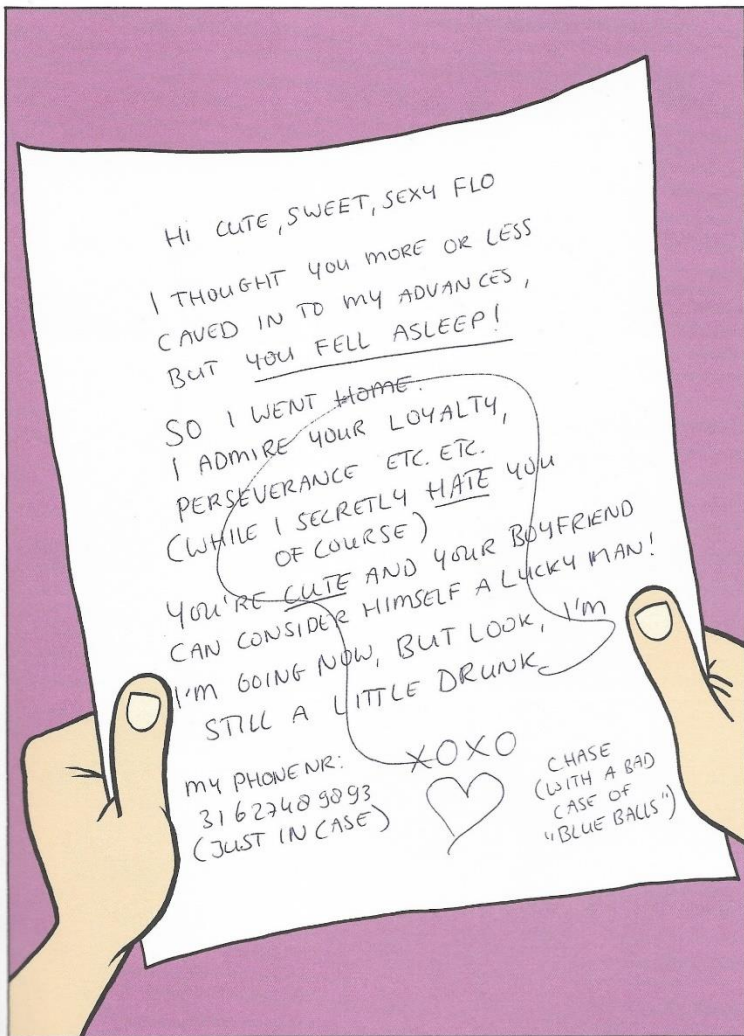 HI CUTE, SWEET, SEXY FLO
I THOUGHT YOU MORE OR LESS
CAVED IN TO MY ADVANCES,
BUT YOU FELL ASLEEP!
SO I WENT HOME.
I ADMIRE YOUR LOYALTY,
PERSEVERANCE ETC. ETC.
(WHILE I SECRETLY HATE YOU
OF COURSE)
YOU'RE CUTE AND YOUR BOYFRIEND
CAN CONSIDER HIMSELF A LUCKY MAN!
I'M GOING NOW, BUT LOOK, I'M
STILL A LITTLE DRUNK
XOXO
MY PHONE NR:
31627489893
(JUST IN CASE)
CHASE
(WITH A BAD
CASE OF
"BLUE BALLS")